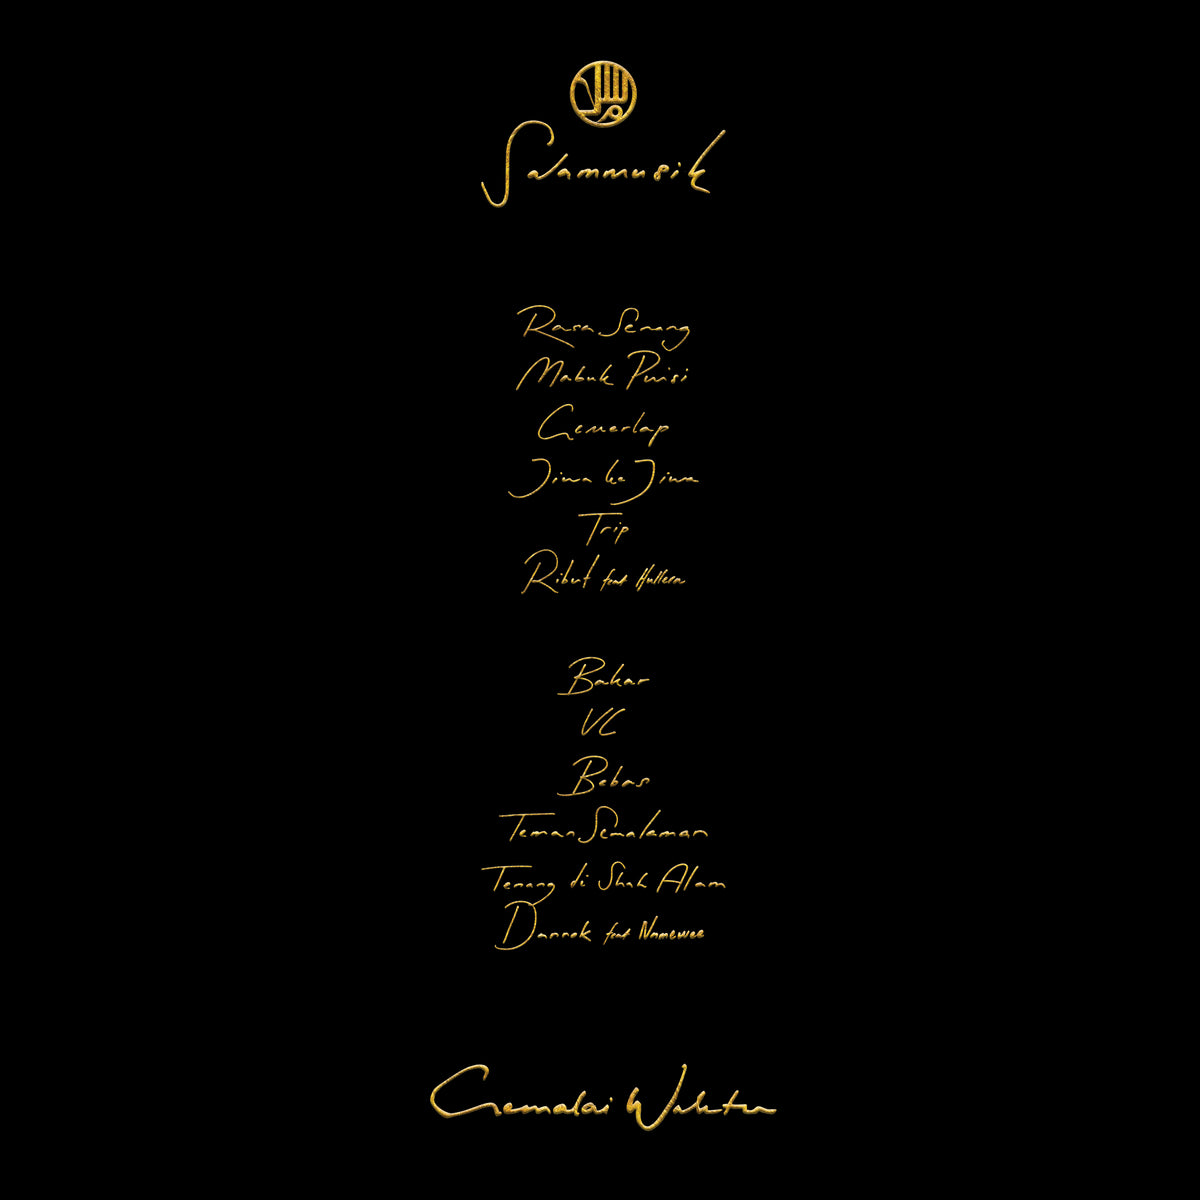 Salammusik
Rasa Senang
Mabuk Puisi
Gemerlap
Jiwa ke Jiwa
Trip
Ribut feat Hullera
Bakar
VC
Bebas
Teman Semalaman
Tenang di Shah Alam
Dannok feat Namewee
Gemalai Waktu